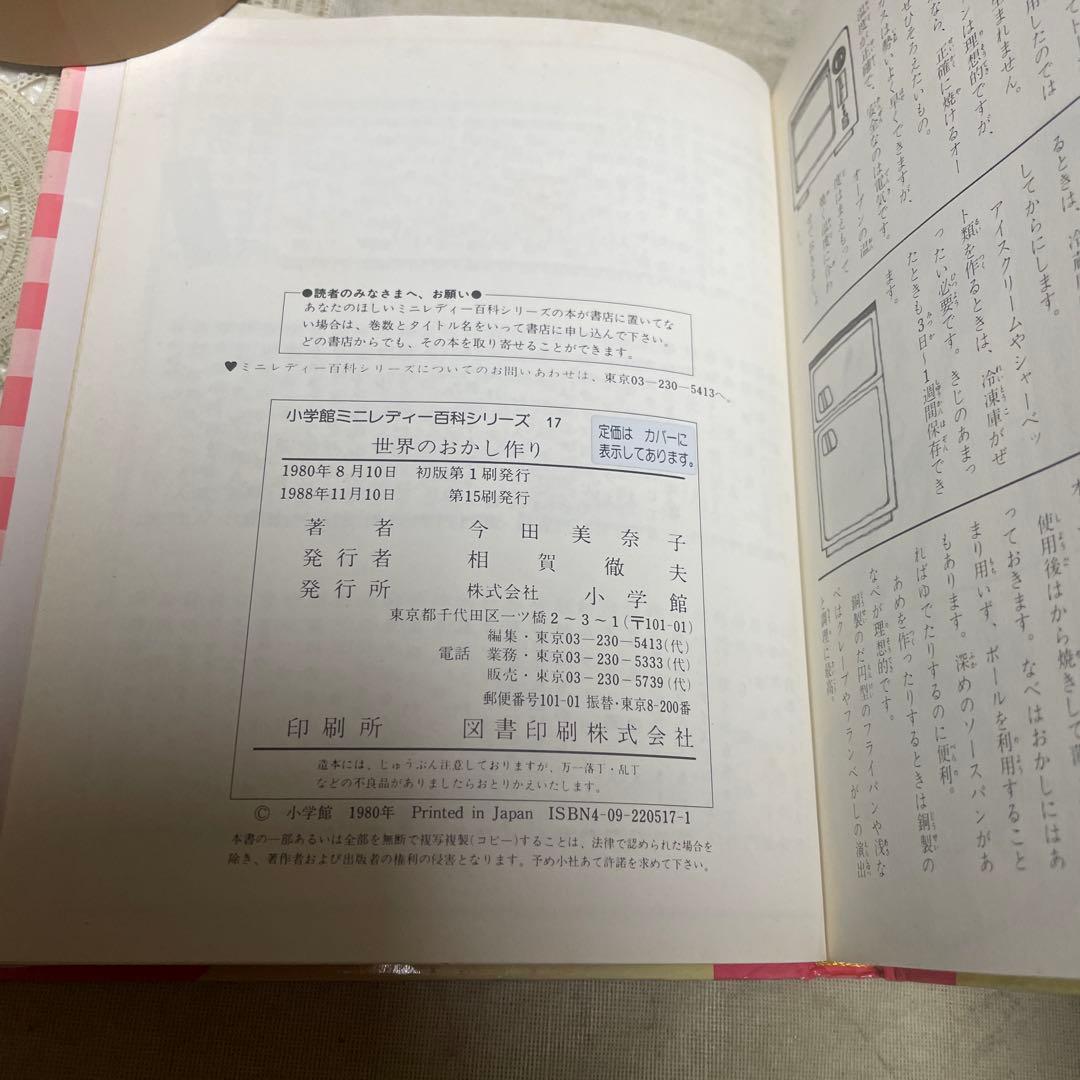 ●読者のみなさまへ、お願い●
あなたのほしいミニレディー百科シリーズの本が書店に置いてな
い場合は、巻数とタイトル名をいって書店に申し込んで下さい。
どの書店からでも、その本を取り寄せることができます。
♥ミニレディー百科シリーズについてのお問いあわせは、東京03—230—5413へ。
小学館ミニレディー百科シリーズ 17
世界のおかし作り
定価は カバーに
表示してあります。
1980年8月10日 初版第1刷発行
1988年11月10日 第15刷発行
著者 今田美奈子
発行者 相賀徹夫
発行所 株式会社 小学館
東京都千代田区一ツ橋2〜3〜1(〒101-01)
編集・東京03—230—5413(代)
電話 業務・東京03—230—5333(代)
販売・東京03—230—5739(代)
郵便番号101-01 振替・東京8-200番
印刷所 図書印刷株式会社
造本には、じゅうぶん注意しておりますが、万一落丁・乱丁
などの不良品がありましたらおとりかえいたします。
© 小学館 1980年 Printed in Japan ISBN4-09-220517-1
本書の一部あるいは全部を無断で複写複製(コピー)することは、法律で認められた場合を
除き、著作者および出版者の権利の侵害となります。予め小社あて許諾を求めて下さい。
用したのでは
まれません。
ンは理想的ですが、
なら、正確に焼けるオー
ぜひそろえたいもの。
ガスは熱いよく早くできますが、
安全なのは電気です。
オーブンの温
度はまえもって
るときは、冷蔵
してからにします。
アイスクリームやシャーベッ
ト類を作るときは、冷凍庫がぜ
ったい必要です。きじのあまっ
たときも3日〜1週間保存でき
ます。
使用後はから焼きして
っておきます。なべはおかしにはあ
まり用いず、ボールを利用すること
もあります。深めのソースパンがあ
ればゆでたりするのに便利。
あめを作ったりするときは銅製の
なべが理想的です。
銅製のだ円型のフライパンや浅な
べはクレープやフランベがしの演出
と調理に最高。